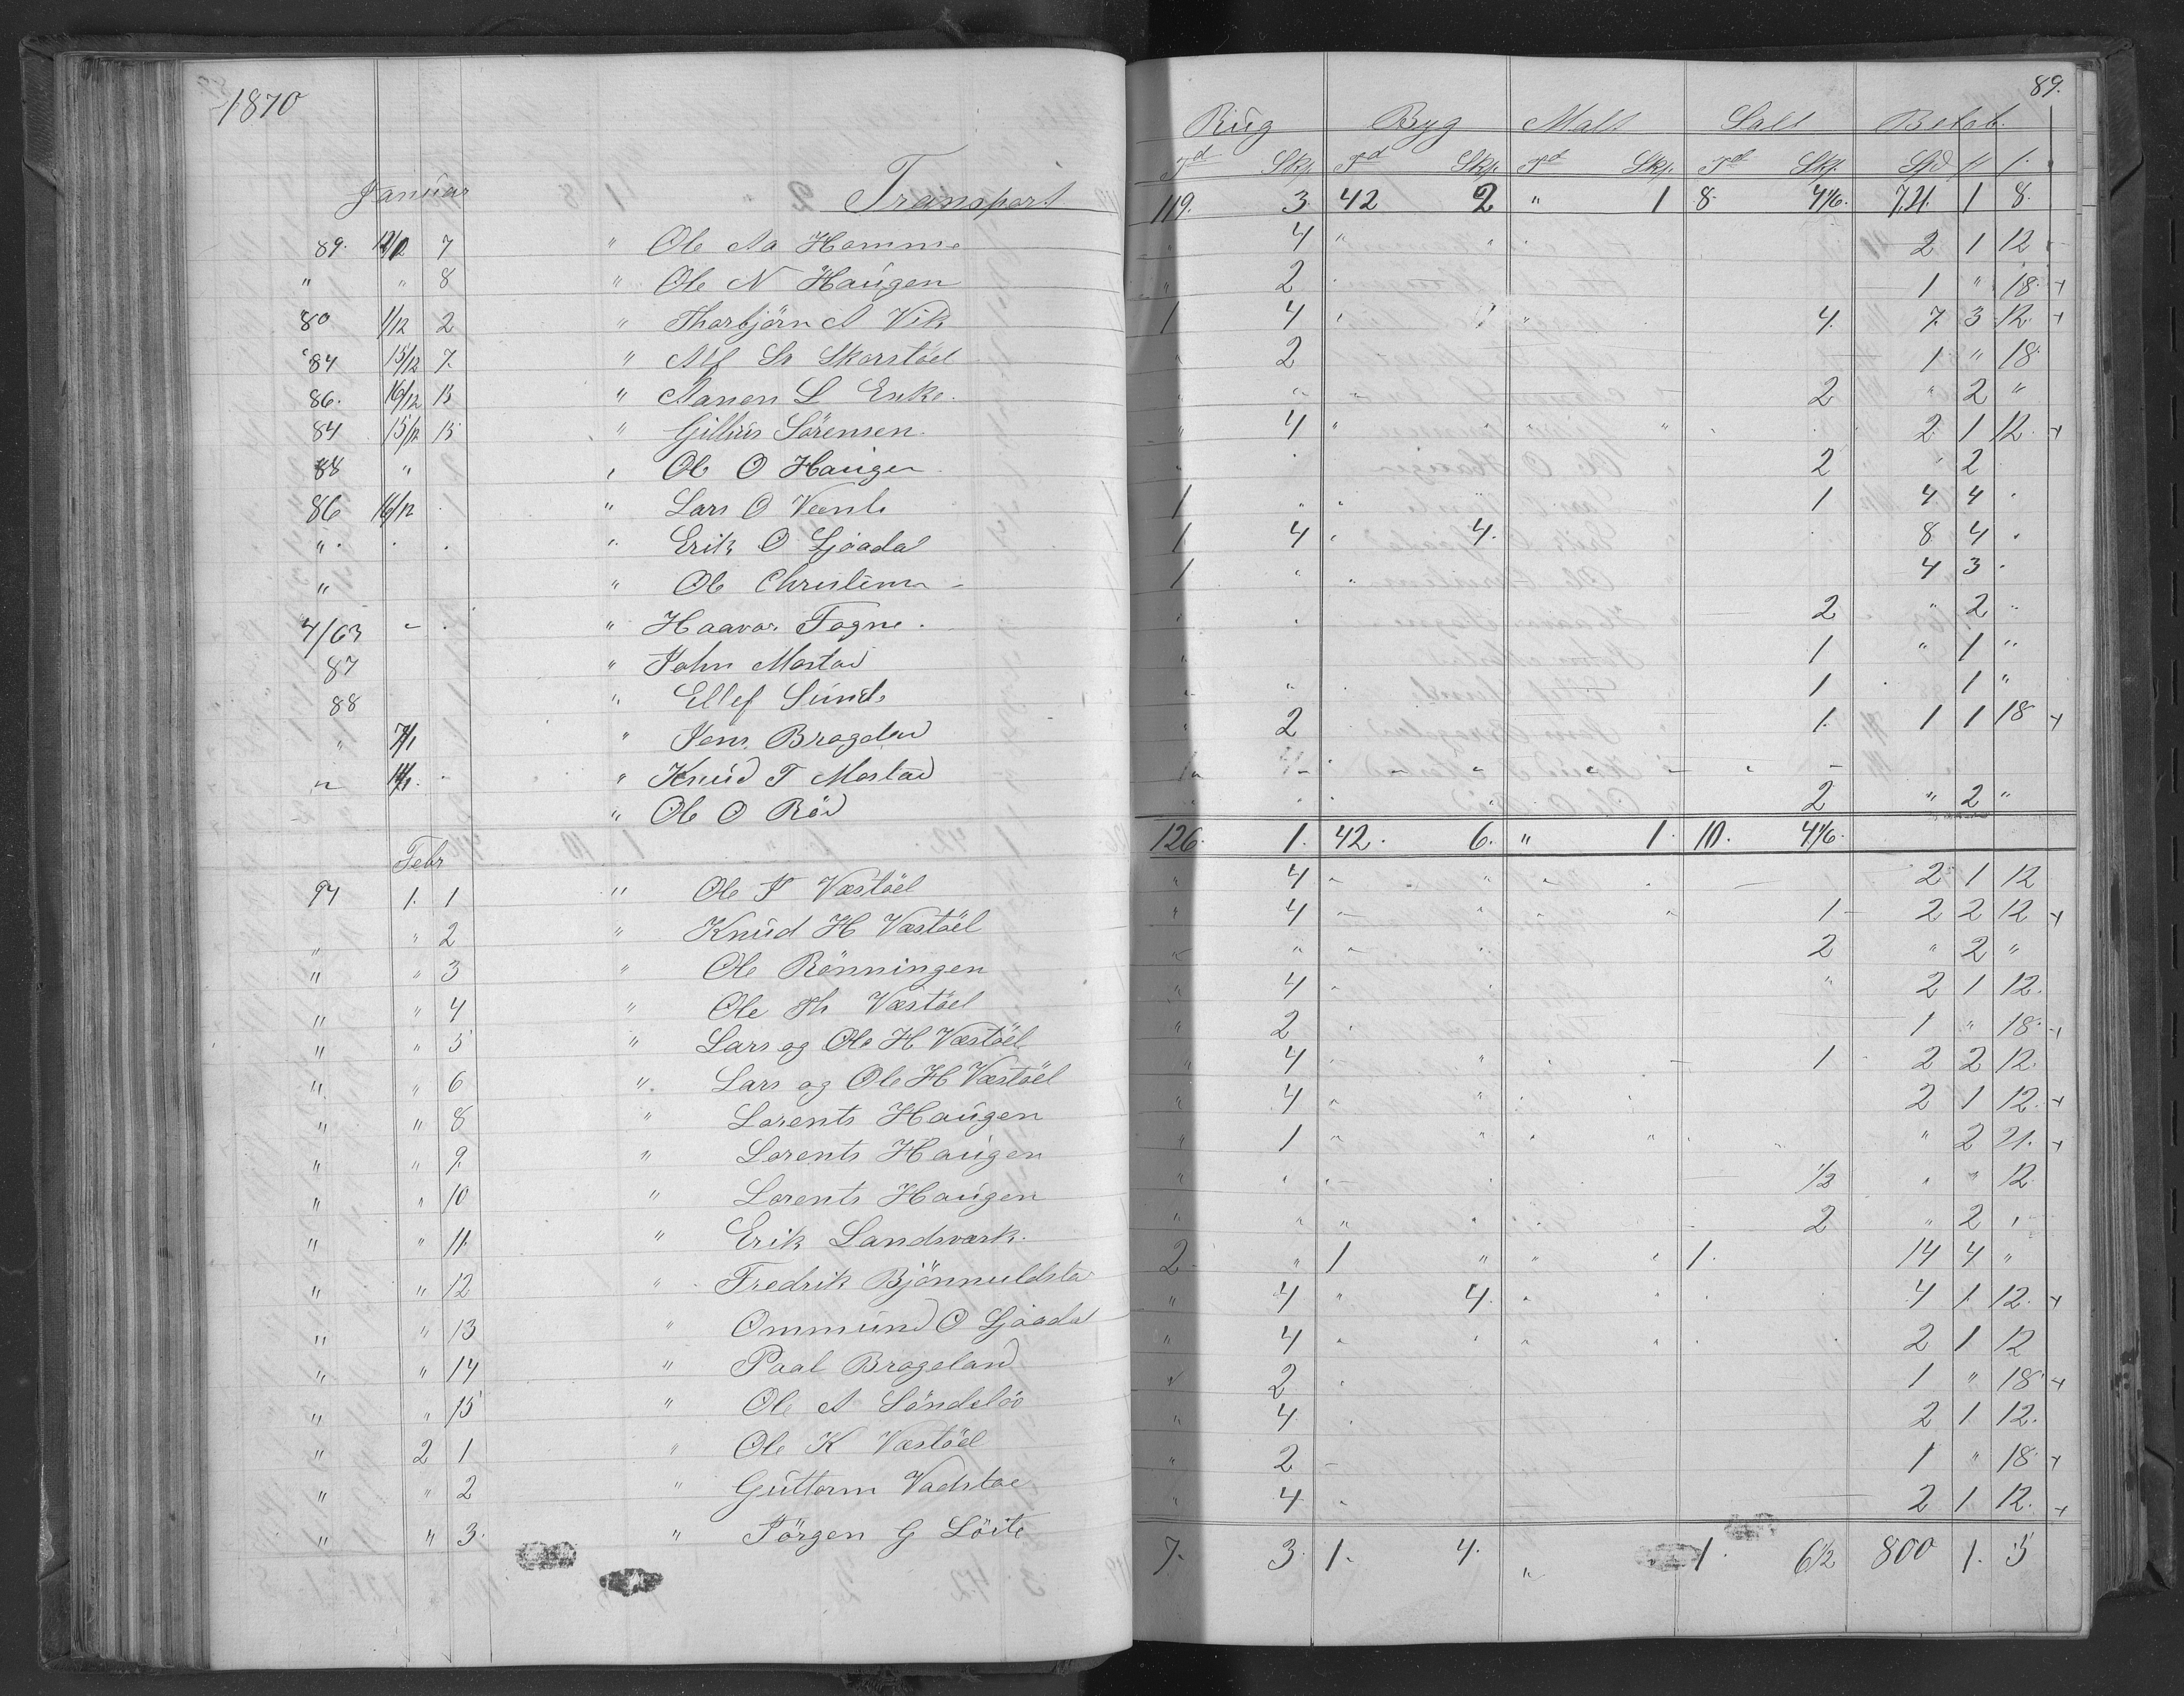 1870
89.
Rug Byg Malt Salt Beløb.
Td Skp. Td Skp. Td Skp. Td Skp. Spd
Januar Transport 119. 3 42 2 " 1 8 4 1/6. 721. 1 8.
89. 7 " Ole Aa Homme " 4 " " 2 1 12
" " 8 " Ole N Haugen " 2 1 " 18. +
80 1/12 2 " Thorbjörn A Vik 1 4 4. 7. 3 12. +
84 15/12 7. " Alf Sr Skarstöel 2 1 " 18.
86. 16/12 13 " Aanen L Enke. 2 " 2 "
84 15/12 15 " Gillius Sörensen. " 4 " 2 1 12. +
88 " " Ole O Haugen 2 " 2
86 16/12 " Lars O Veenli 1 1 4. 4
" " Erik O Ljöadal 1 4 4. 8 4
" " Ole Christensen 1 4 3
4/63 " Haavor Fogne. 2 " 2 "
87 " John Mostad 1 " 1 "
88 " Ellef Sunde 1 1 "
" 7/1 " Jens Brageland 2 1. 1 1 18 +
" 14/1 " Knud T Mostad
" Ole O Röd 2 " 2 "
126. 1. 42. 6. " 1. 10. 4 1/6.
Febr
94 1. 1 " Ole P Væstöel " 4 2 1 12
" " 2 " Knud H Væstöel " 4 1 2 2 12 +
" " 3 " Ole Rönningen 2 " 2 "
" " 4 " Ole Th Væstöel " 4 " 2 1 12.
" " 5 " Lars og Ole H Væstöel " 2 1 " 18. +
" " 6 " Lars og Ole H Væstöel " 4 1 2 2 12.
" " 8 " Lorents Haugen " 4 2 1 12. +
" " 9. " Lorents Haugen " 1 " 2 21. +
" " 10 " Lorents Haugen " 1/2 " " 12
" " 11. " Erik Landsværk. " " " 2 " 2
" " 12 " Fredrik Bjönnuldsta 2 " 1 " " 1. 14 4 "
" " 13 " Ommund O Ljöadal " 4 " 4. 4 1. 12. +
" " 14 " Paal Brageland " 4 2 1 12
" " 15 " Ole A Söndelöv " 2 1 " 18 +
" 2 1 " Ole K Væstöel " 4 2 1 12.
" " 2 " Guttorm Vadstoe " 2 1 " 18. +
" " 3. " Jörgen G Löite " 4 2 1 12. +
7. 3. 1. 4. " 1. 6 1/2 800 1. 5